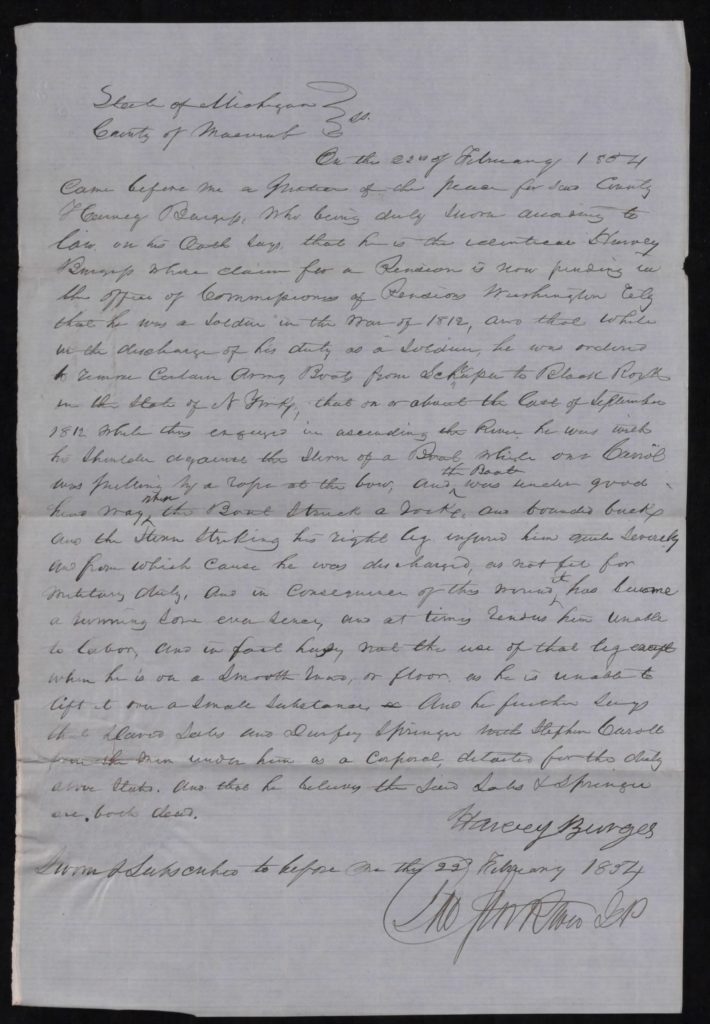 State of Michigan } ss.
County of Macomb }
On the 22nd of February 1854
Came before me a Justice of the peace for said County
Harvey Burgess, who being duly sworn according to
law, on his Oath says, that he is the identical Harvey
Burgess whose claim for a Pension is now pending in
the office of Commissioner of Pensions Washington City
that he was a soldier in the War of 1812, and that while
in the discharge of his duty as a soldier, he was ordered
to remove Certain Army Boats from to Black Rock
in the State of N York, that on or about the last of September
1812 while thus engaged in ascending the River he was with
his shoulder against the Stern of a Boat, while one Carroll
was pulling by a rope at the bow, and the Boat was under good
head way when the Boat struck a rock, and bounded back
and the Stern striking his right leg injured him quite severely
and from which cause he was discharged, as not fit for
military duty, and in consequence of this wound it has become
a running sore ever since, and at times renders him unable
to labor, and in fact has not the use of that leg except
when he is on a smooth road, or floor, as he is unable to
lift it over a small substance And he further says
that David and Durfey Springer with Stephen Carroll
men under him as a Corporal, detailed for the duty
above stated. and that he believes the said & Springer
are both dead.
Harvey Burges
Sworn & Subscribed to before me this 22d February 1854
JP